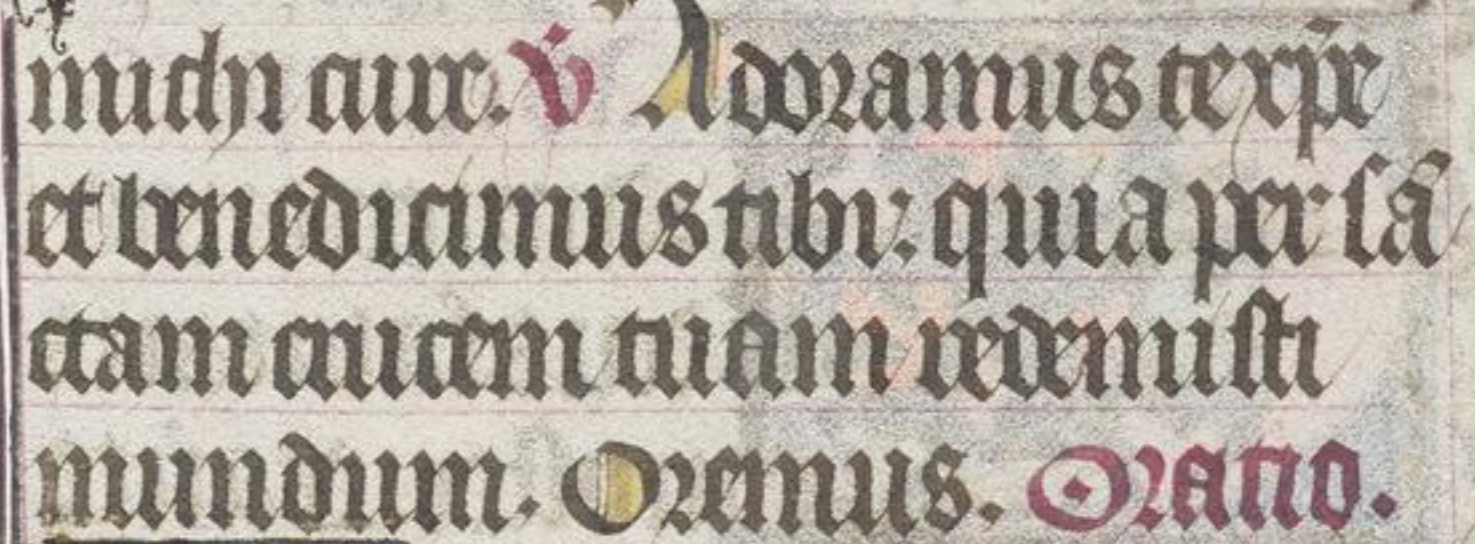 michi cure. v̄ Adoramus te xp̄e
et benedicimus tibi: quia per sā
ctam crucem tuam redemisti
mundum. Oremus. Oratio.